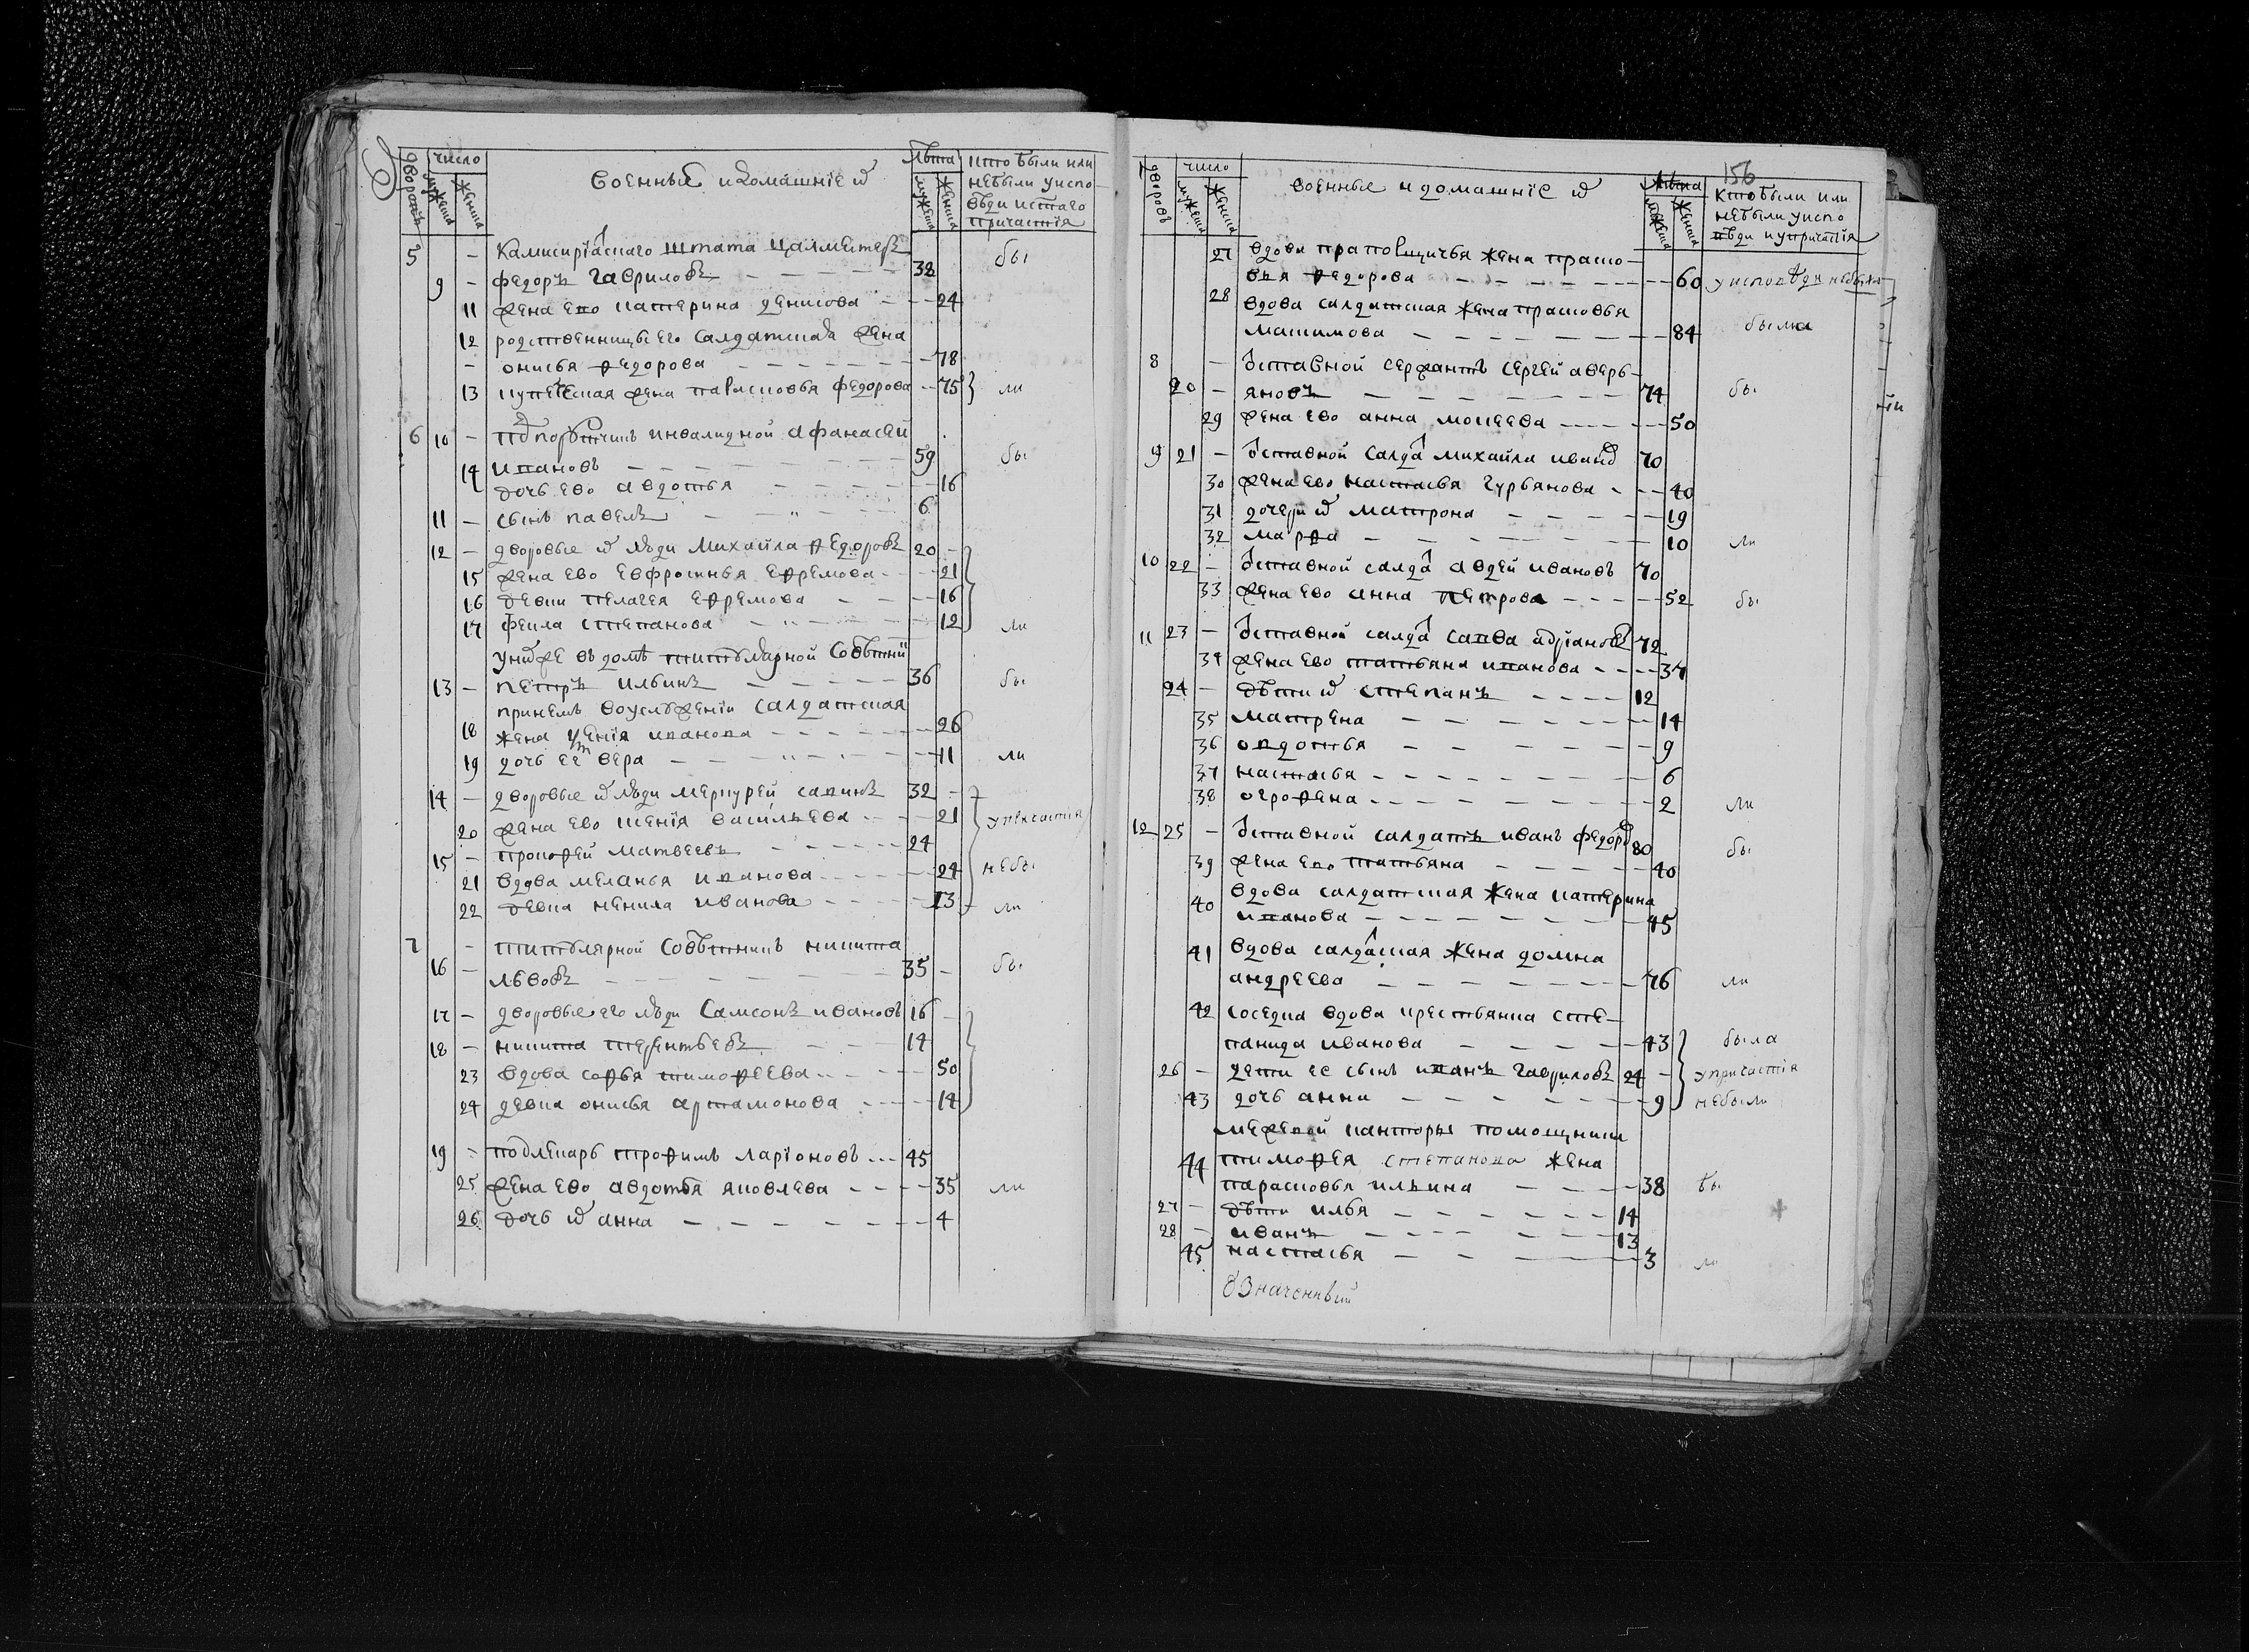 дворовъ число мужеска женска военные и домашнiе их лѣта мужеска женска кто были или
небыли уиспо
вѣди истаго
причастiя
5 — Камисирiаскаго штата цалмейтеръ бы
9 — федоръ гавриловъ — 38
11 жена ево катерина денисова — 24
12 родственницы его салдатская жена
— онисья федорова — 78
13 купеческая жена парасковья федорова — 75 ли
6 10 — подпорутчикъ инвалидной афанасей
ивановъ — 59 бы
14 дочь ево авдотья — 16
11 — сынъ павелъ — 6
12 — дворовые их люди михайла федоровъ 20 —
15 жена ево евфросинья ефремова — 21
16 девки пелагея ефремова — 16
17 фекла степанова — 12 ли
унихже вдомѣ титулярной совѣтникъ
13 — петръ ильинъ — 36 бы
принемъ воуслужении салдатская
18 жена иванова — 26
19 дочь ее вера — 11 ли
14 — дворовые их люди меркурей савинъ 32 —
20 жена ево ксенiя васильева — 21 упричастiя
15 — прокофей матвеевъ — 24
21 вдова меланья иванова — 24 небы
22 девка ненила иванова — 13 ли
7 — титулярной совѣтникъ никита
16 — львовъ — 35 — бы
17 — дворовые его люди самсонъ ивановъ 16 —
18 — никита терентьевъ — 14
23 вдова софья тимофеева — 50
24 девка онисья артамонова — 14
19 — подлекарь трофимъ ларiоновъ — 45
25 жена ево авдотья яковлева — 35 ли
26 дочь их анна — 4
156
дворовъ число мужеска женска военные и домашнiе их лѣта мужеска женска кто были или
небыли уиспо
вѣди иупричастiя
27 вдова прапорщичья жена праско
вья федорова — 60 уисповѣди небыла
28 вдова салдатская жена прасковья
макимова — 84 была
8 — отставной сержантъ сергей аверь
20 — яновъ — 74 бы
29 жена ево анна мокеева — 50
9 21 — отставной салдат михайла иванов 70
30 жена ево настасья гурьянова — 40
31 дочери их матрона — 19
32 марфа — 10 ли
10 22 — отставной салдат авдей ивановъ 70
33 жена ево анна петрова — 52 бы
11 23 — отставной салдат савва адрiановъ 72
34 жена ево татьяна иванова — 37
24 — дѣти их степанъ — 12
35 матрена — 14
36 овдотья — 9
37 настасья — 6
38 огрофена — 2 ли
12 25 — отставной салдатъ иванъ федоров 80 бы
39 жена ево татьяна — 40
40 вдова салдатская жена катерина
иванова — 45
41 вдова салдатская жена домна
андреева — 76 ли
42 соседка вдова крестьянка сте
панида иванова — 43 была
26 — дети ее сынъ иванъ гавриловъ 24 — упричастiя
43 дочь анна — 9 небыли
межевой канторы помощника
44 тимофея степанова жена
парасковья ильина — 38 бы
27 — дѣти илья — 14
28 — иванъ — 13
45 настасья — 3 ли